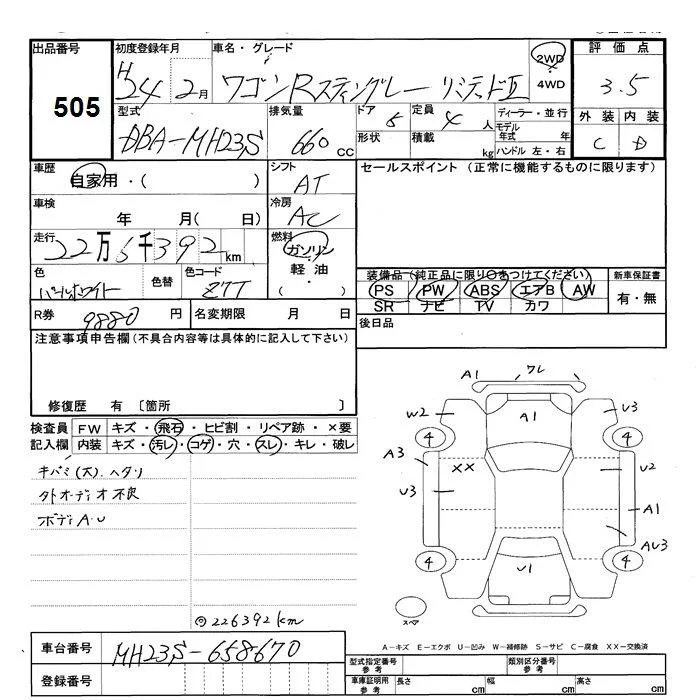 出品番号
505
初度登録年月
H24 2月
車名・グレード
ワゴンRスティングレー リミテッドⅡ
2WD
4WD
評価点
3.5
型式
DBA-MH23S
排気量
660 cc
ドア 5
形状
定員 4 人
積載 kg
ディーラー・並行
モデル年式 年
ハンドル 左・右
外装 内装
C D
車歴
自家用・( )
シフト
AT
セールスポイント (正常に機能するものに限ります)
車検
年 月( )
冷房
AC
走行
22万6千392km
燃料
ガソリン
軽油
( )
色
パールホワイト
色替
色コード
Z7T
装備品(純正品に限り○をつけてください)
PS PW ABS エアB AW
SR ナビ TV カワ
新車保証書
有・無
R券 9880 円
名変期限 月 日
後日品
注意事項申告欄(不具合内容等は具体的に記入して下さい)
修復歴 有 〔箇所 〕
検査員記入欄
FW キズ・飛石・ヒビ割・リペア跡・×要
内装 キズ・汚レ・コゲ・穴・スレ・キレ・破レ
キバミ(大).ヘタリ
外オーディオ不良
ボディA.U
◎226392km
A1 ワレ
W2 A1 U3
4 4
A3 XX U2
U3 A1
AU3
4 U1 4
スペア
A-キズ E-エクボ U-凹み W-補修跡 S-サビ C-腐食 XX-交換済
車台番号
MH23S-658670
登録番号
型式指定番号 参考
類別区分番号 参考
車庫証明用 参考
長さ cm 幅 cm 高さ cm